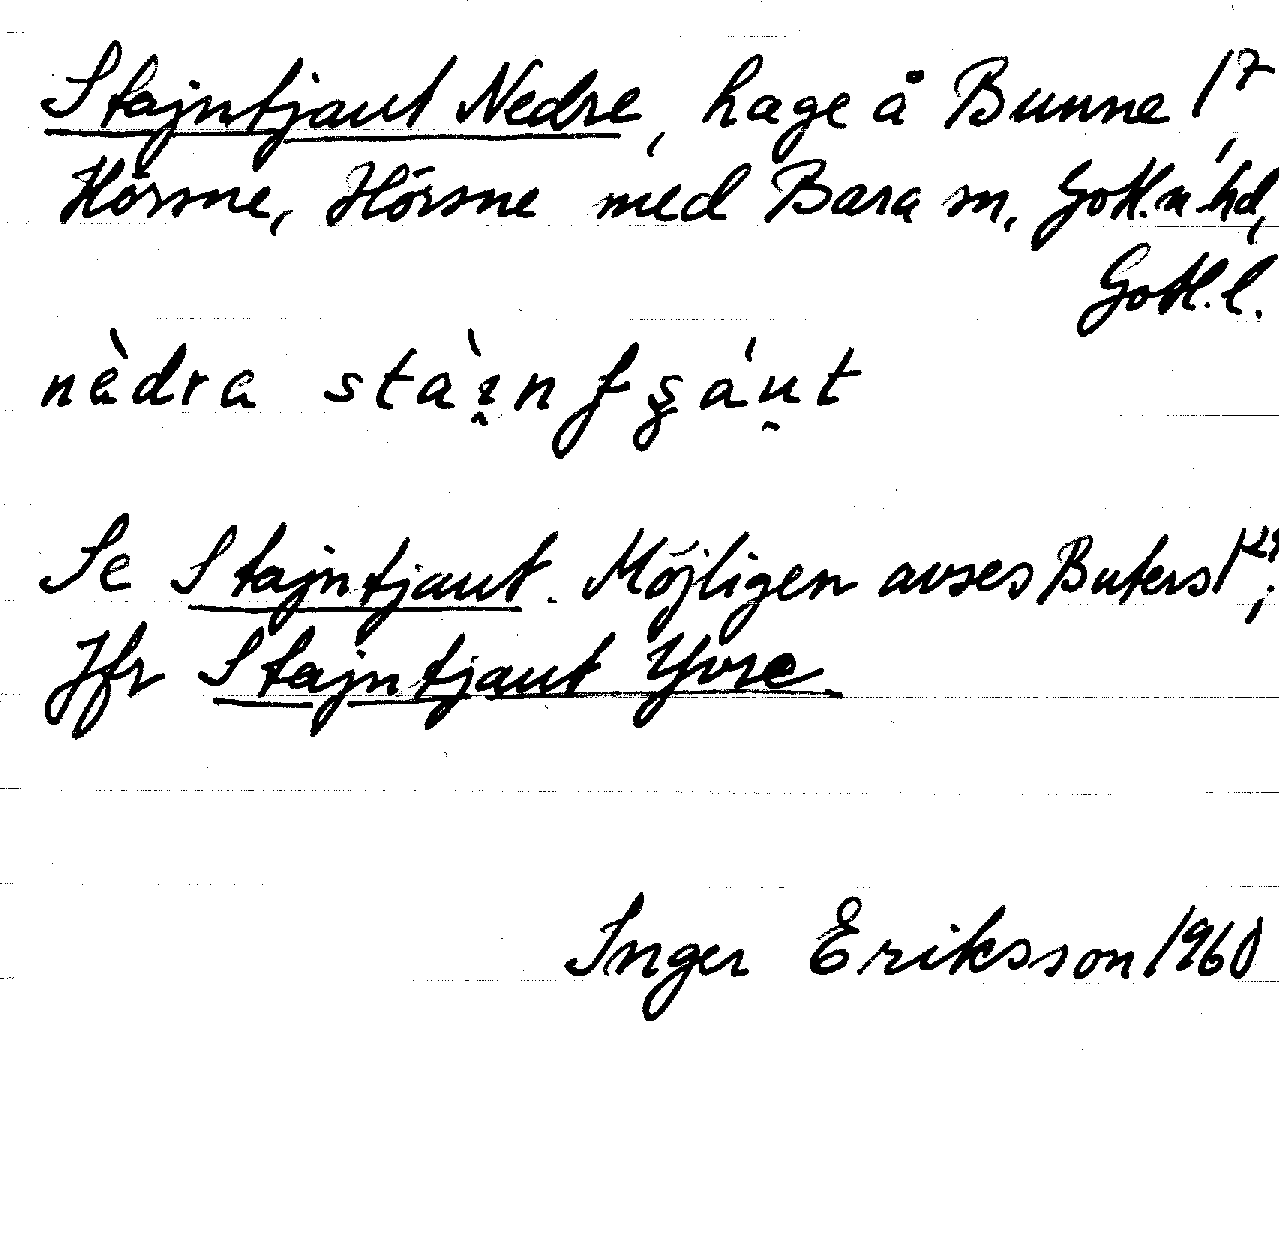 Stajntjaut Nedre, hage å Bunne 1⁷,
Hörsne, Hörsne med Bara sn, Gotl. n. hd,
Gotl. l.
nèdra stàinfşáut
Se Stajntjaut. Möjligen avses Buters 1²⁹;
Jfr Stajntjaut Yvre.
Inger Eriksson 1960